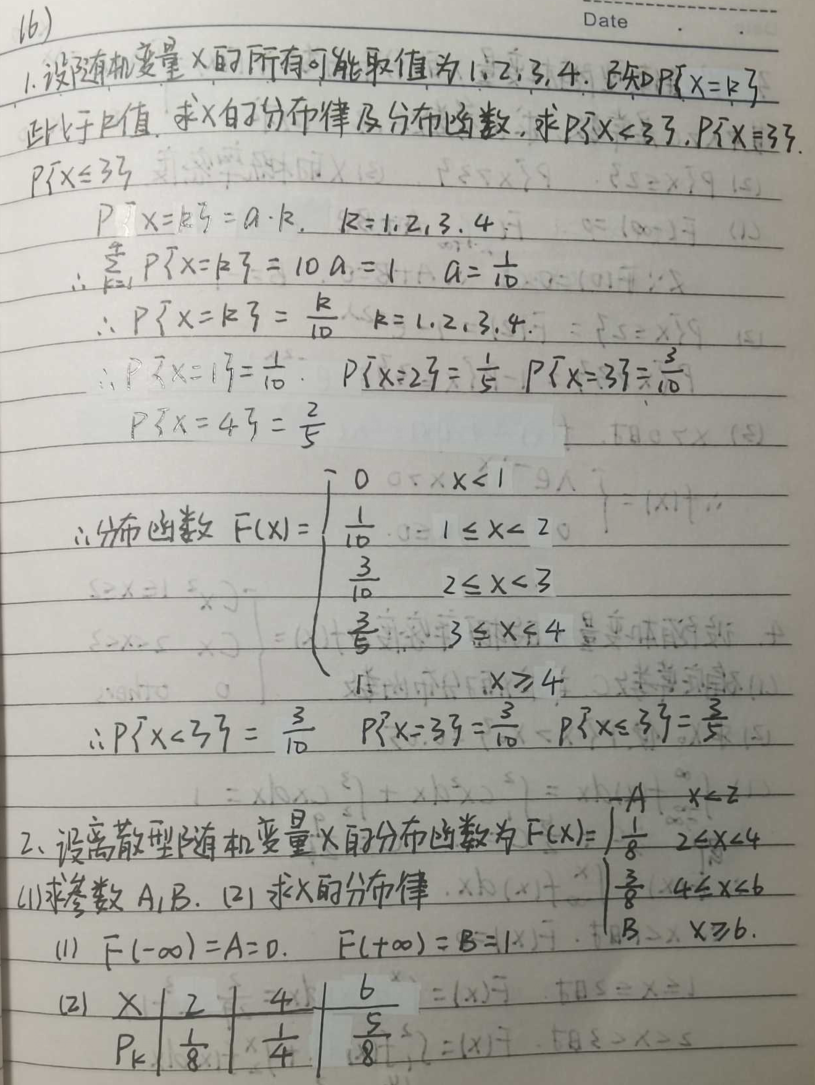 Date
16)
1. 设随机变量X的所有可能取值为1,2,3,4. 已知P{X=k}
正比于k值. 求X的分布律及分布函数, 求P{X<3}, P{X=3}.
P{X≤3}
P{X=k}=a·k, k=1,2,3.4
∴ ∑_{k=1}^{4} P{X=k}=10a=1 a=1/10
∴ P{X=k}=k/10 k=1.2,3,4.
∴ P{X=1}=1/10. P{X=2}=1/5 P{X=3}=3/10
P{X=4}=2/5
0 x<1
∴分布函数 F(x)= { 1/10 1≤x<2
3/10 2≤x<3
3/5 3≤x<4
1 x≥4
∴P{X<3}=3/10 P{X=3}=3/10 P{X≤3}=3/5
A x<2
2、设离散型随机变量X的分布函数为F(x)= { 1/8 2≤x<4
(1)求参数A,B. (2) 求X的分布律 3/8 4≤x<6
B x≥6.
(1) F(-∞)=A=0. F(+∞)=B=1
(2) X | 2 | 4 | 6
Pk | 1/8 | 1/4 | 5/8